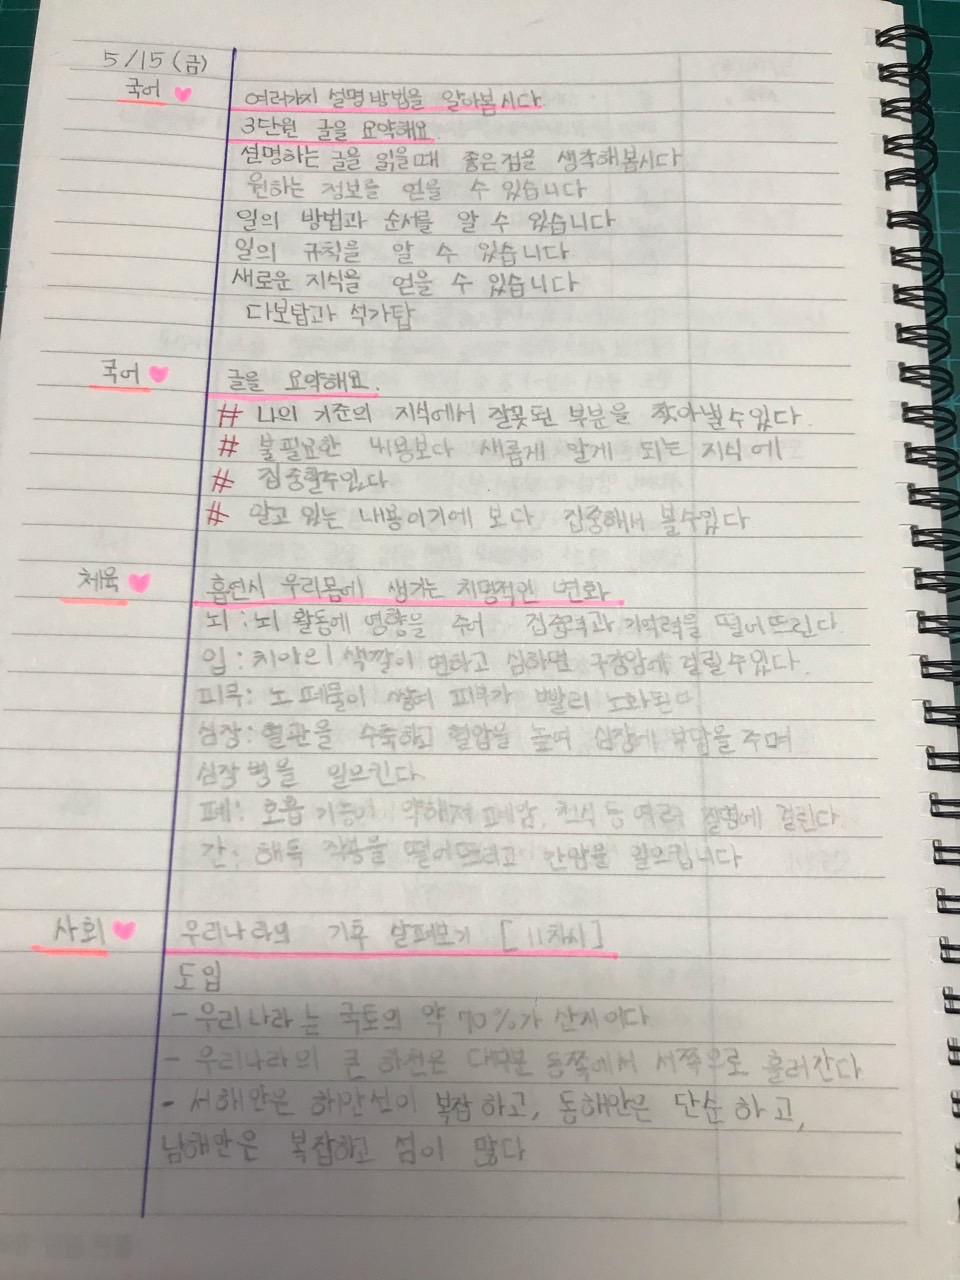 5/15 (금)
국어 여러가지 설명 방법을 알아봅시다.
3단원 글을 요약해요.
설명하는 글을 읽을때 좋은점을 생각해봅시다
원하는 정보를 얻을 수 있습니다
일의 방법과 순서를 알 수 있습니다
일의 규칙을 알 수 있습니다
새로운 지식을 얻을 수 있습니다
다보탑과 석가탑
국어 글을 요약해요.
# 나의 기준의 지식에서 잘못된 부분을 찾아낼수있다.
# 불필요한 내용보다 새롭게 알게 되는 지식에
# 집중할수있다
# 알고 있는 내용이기에 보다 집중해서 볼수있다
체육 흡연시 우리몸에 생기는 치명적인 변화
뇌: 뇌 활동에 영향을 주어 집중력과 기억력을 떨어뜨린다.
입: 치아의 색깔이 변하고 심하면 구강암에 걸릴수있다.
피부: 노폐물이 쌓여 피부가 빨리 노화된다
심장: 혈관을 수축하고 혈압을 높여 심장에 부담을 주며
심장병을 일으킨다
폐: 호흡 기능이 약해져 폐암, 천식 등 여러 질병에 걸린다.
간: 해독 작용을 떨어뜨리고 간암을 일으킵니다
사회 우리나라의 기후 살펴보기 [11차시]
도입
- 우리나라는 국토의 약 70%가 산지이다
- 우리나라의 큰 하천은 대부분 동쪽에서 서쪽으로 흘러간다
- 서해안은 해안선이 복잡하고, 동해안은 단순하고,
남해안은 복잡하고 섬이 많다